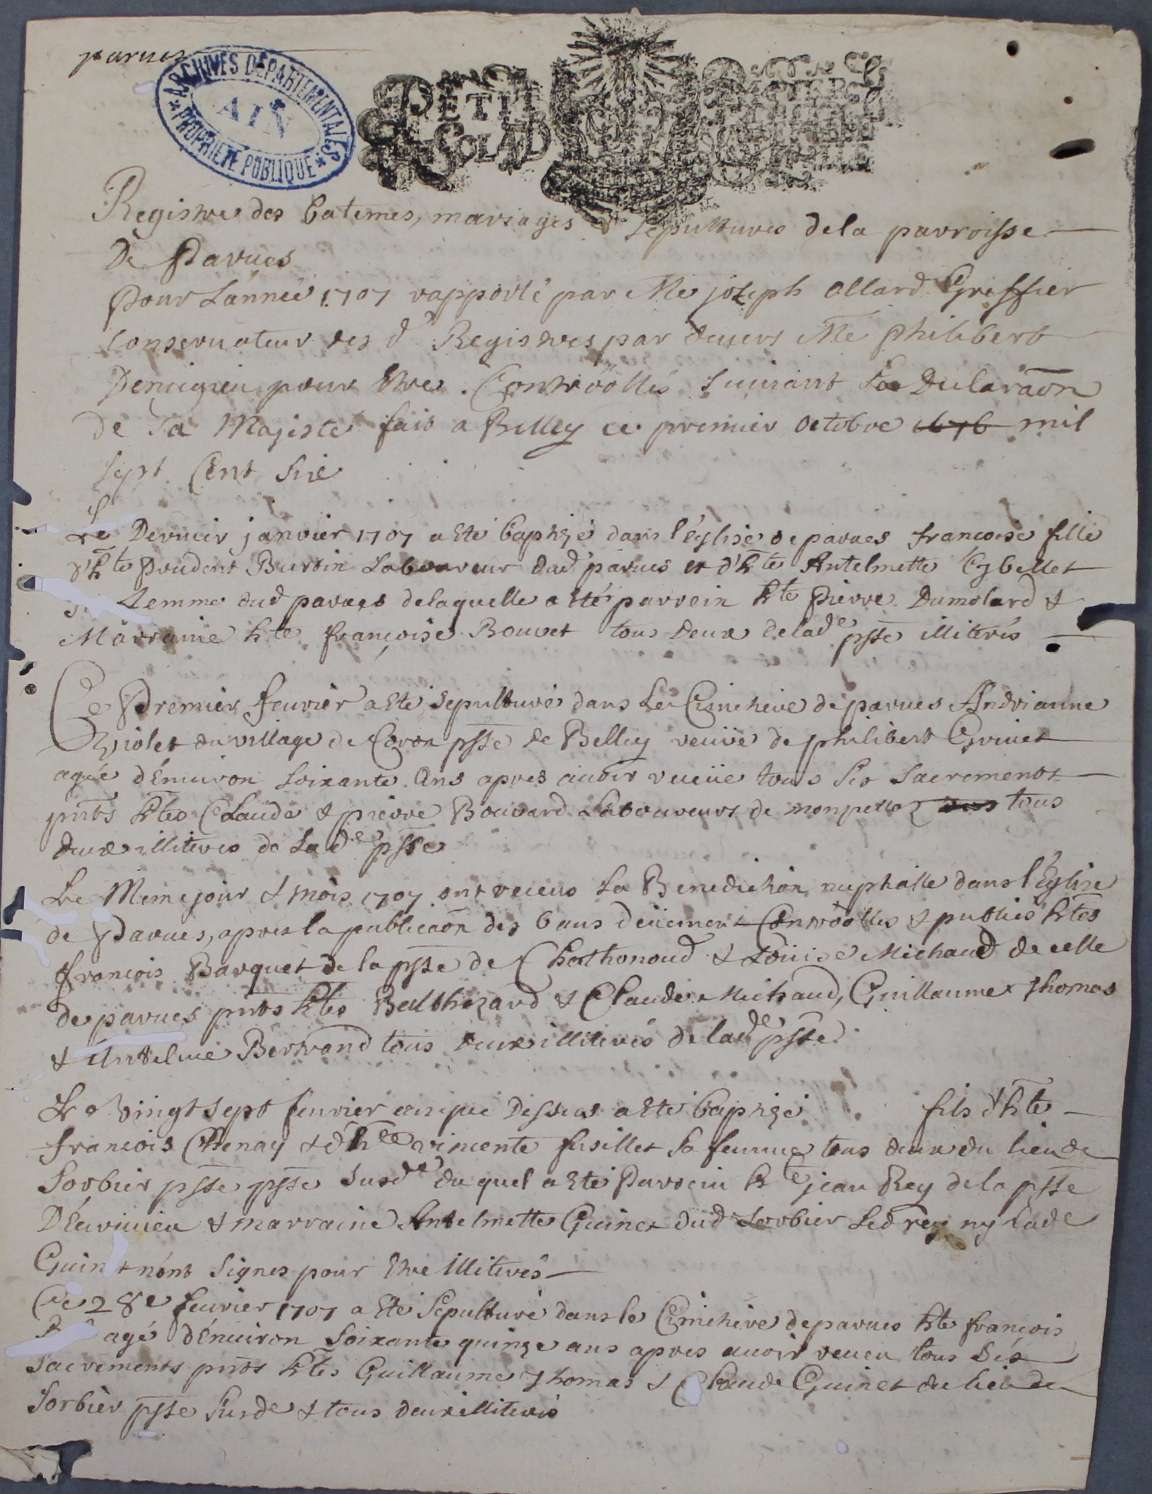 parves
ARCHIVES DÉPARTEMENTALES
AIN
★ PROPRIÉTÉ PUBLIQUE ★
PETIT
SOL D
Registres des batemes, mariages & sepultures de la parroisse
De Parves
Pour L'année 1707 rapporté par Me joseph Ollard Greffier
Conservateur des d. Registres par devers Me Philibert
pour Etre Controollés suivant La Declaraõn
de Sa Majeste fait a Belley ce premier Octobre 1676 mil
sept Cent six
Le Dernier janvier 1707 a Eté baptizé dans l'église de parves francoise fille
d'hte prudent Burtin Laboureur dud parves et d'hte Antelmette
Sa femme dud parves de laquelle a eté parrein hte Pierre Dumolard &
Marraine hte françoise Bouvet tous deux de lade psse illiterés
Ce Premier fevrier a Eté sepulturé dans Le Cimetiere de parves Andrianne
Violet du village de Coron psse de Belley veuve de philibert Grinet
agée d'Environ soixante Ans apres avoir receue tous Ses Sacrements
pnts htes Claude & pierre Bouvard Laboureurs de tous
deux illiteres de La de psse
Le Meme jour & mois 1707 ont receus La Benediction nuptialle dans l'église
de Parves, apres la publicaõn des bans deüement Controollés & publiés htes
françois Barquet de la psse de Chathonoud & Louise Michaud de celle
de parves pnts htes Balthezard & Claude Michaud, Guillaume Thomas
& Antelme Bertrand tous deux illiterés de lade psse
Le Vingt sept fevrier Dessus a eté baptizé fils d'hte
francois Chenay & d'hte vincente fusillet sa femme tous deux du lieu de
Sorbier psse psse susde du quel a Eté Parrein hte jean Rey de la psse
& marraine Antelmette Guinet dud Sorbier Led rey ny lade
Guinet nont Signes pour Etre illiterés
Ce 28e fevrier 1707 a Eté Sepulturé dans le Cimetiere de parves hte francois
agé d'Environ Soixante quinze ans apres avoir receu tous Ses
Sacrements pnts htes Guillaume Thomas & Claude Guinet du lieu de
Sorbier psse susde & tous deux illiterés